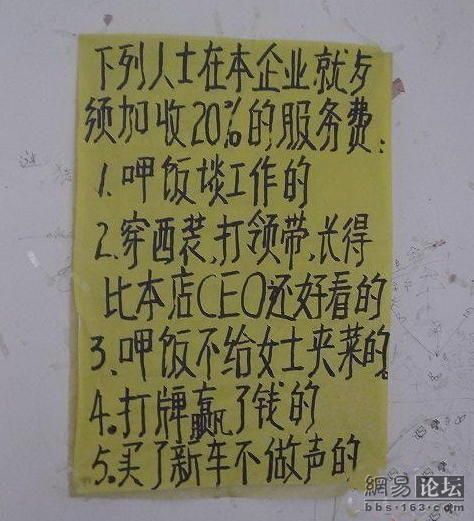 下列人士在本企业就歺
须加收20%的服务费：
1.呷饭谈工作的
2.穿西装,打领带,长得
比本店CEO还好看的
3.呷饭不给女士夹菜的。
4.打牌赢了钱的
5.买了新车不做声的
網易 论坛
bbs·163·com